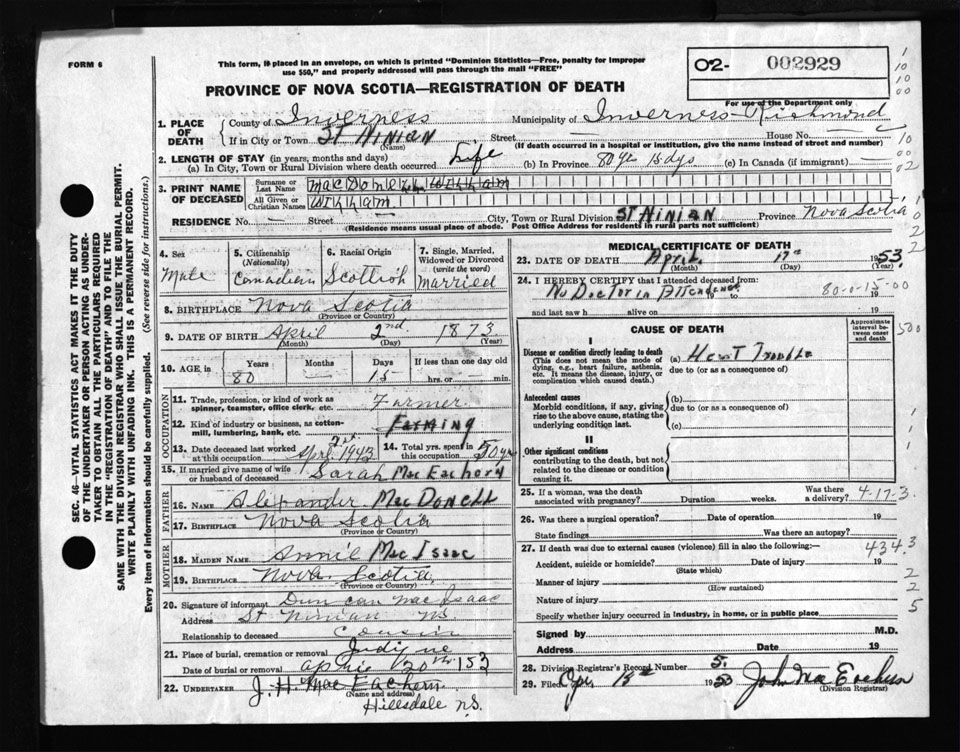 FORM 6
This form, if placed in an envelope, on which is printed "Dominion Statistics—Free, penalty for improper
use $50," and properly addressed will pass through the mail "FREE"
O2- 002929
PROVINCE OF NOVA SCOTIA—REGISTRATION OF DEATH
For use of the Department only
1. PLACE OF DEATH
County of Inverness Municipality of Inverness Richmond
If in City or Town St Ninian (Name) Street House No.
(If death occurred in a hospital or institution, give the name instead of street and number)
2. LENGTH OF STAY (in years, months and days)
(a) In City, Town or Rural Division where death occurred Life (b) In Province 80 yr 15 dys (c) In Canada (if immigrant)
3. PRINT NAME OF DECEASED
Surname or Last Name MacDonell William
All Given or Christian Names William
RESIDENCE No. Street City, Town or Rural Division St Ninian Province Nova Scotia
(Residence means usual place of abode. Post Office Address for residents in rural parts not sufficient)
4. Sex Male
5. Citizenship (Nationality) Canadian
6. Racial Origin Scottish
7. Single, Married, Widowed or Divorced (write the word) Married
8. BIRTHPLACE Nova Scotia
(Province or Country)
9. DATE OF BIRTH April 2nd 1873
(Month) (Day) (Year)
10. AGE in Years 80 Months — Days 15 If less than one day old hrs. or min.
OCCUPATION
11. Trade, profession, or kind of work as spinner, teamster, office clerk, etc. Farmer
12. Kind of industry or business, as cotton-mill, lumbering, bank, etc. Farming
13. Date deceased last worked at this occupation April 2st 1943
14. Total yrs. spent in this occupation 50 yr
15. If married give name of wife or husband of deceased Sarah MacEachern
FATHER
16. NAME Alexander MacDonell
17. BIRTHPLACE Nova Scotia
(Province or Country)
MOTHER
18. MAIDEN NAME Annie MacIsaac
19. BIRTHPLACE Nova Scotia
(Province or Country)
20. Signature of informant Duncan MacIsaac
Address St Ninian NS.
Relationship to deceased Cousin
21. Place of burial, cremation or removal Judique
Date of burial or removal April 20th 1953
22. UNDERTAKER J. H. MacEachern
(Name and address)
Hillsdale N.S.
MEDICAL CERTIFICATE OF DEATH
23. DATE OF DEATH April 17th 1953
(Month) (Day) (Year)
24. I HEREBY CERTIFY that I attended deceased from:
No Doctor in Attendance to 19
80-0-15-00
and last saw h alive on 19
CAUSE OF DEATH
Approximate interval between onset and death
I
Disease or condition directly leading to death (a) Heart Trouble
(This does not mean the mode of dying, e.g., heart failure, asthenia, etc. It means the disease, injury, or complication which caused death.)
due to (or as a consequence of)
Antecedent causes
Morbid conditions, if any, giving rise to the above cause, stating the underlying condition last.
(b)
due to (or as a consequence of)
(c)
II
Other significant conditions
contributing to the death, but not related to the disease or condition causing it.
25. If a woman, was the death associated with pregnancy? Duration weeks. Was there a delivery?
4-17-3
26. Was there a surgical operation? Date of operation 19
State findings Was there an autopsy?
27. If death was due to external causes (violence) fill in also the following:—
434.3
Accident, suicide or homicide? Date of injury 19
(State which)
Manner of injury
(How sustained)
Nature of injury
Specify whether injury occurred in industry, in home, or in public place
Signed by M.D.
Address Date 19
28. Division Registrar's Record Number 5.
29. Filed 1953 John MacEachern
(Division Registrar)
SEC. 46—VITAL STATISTICS ACT MAKES IT THE DUTY
OF THE UNDERTAKER OR PERSON ACTING AS UNDER-
TAKER TO OBTAIN ALL THE PARTICULARS REQUIRED
IN THE "REGISTRATION OF DEATH" AND TO FILE THE
SAME WITH THE DIVISION REGISTRAR WHO SHALL ISSUE THE BURIAL PERMIT.
WRITE PLAINLY WITH UNFADING INK. THIS IS A PERMANENT RECORD.
Every item of information should be carefully supplied. (See reverse side for instructions.)